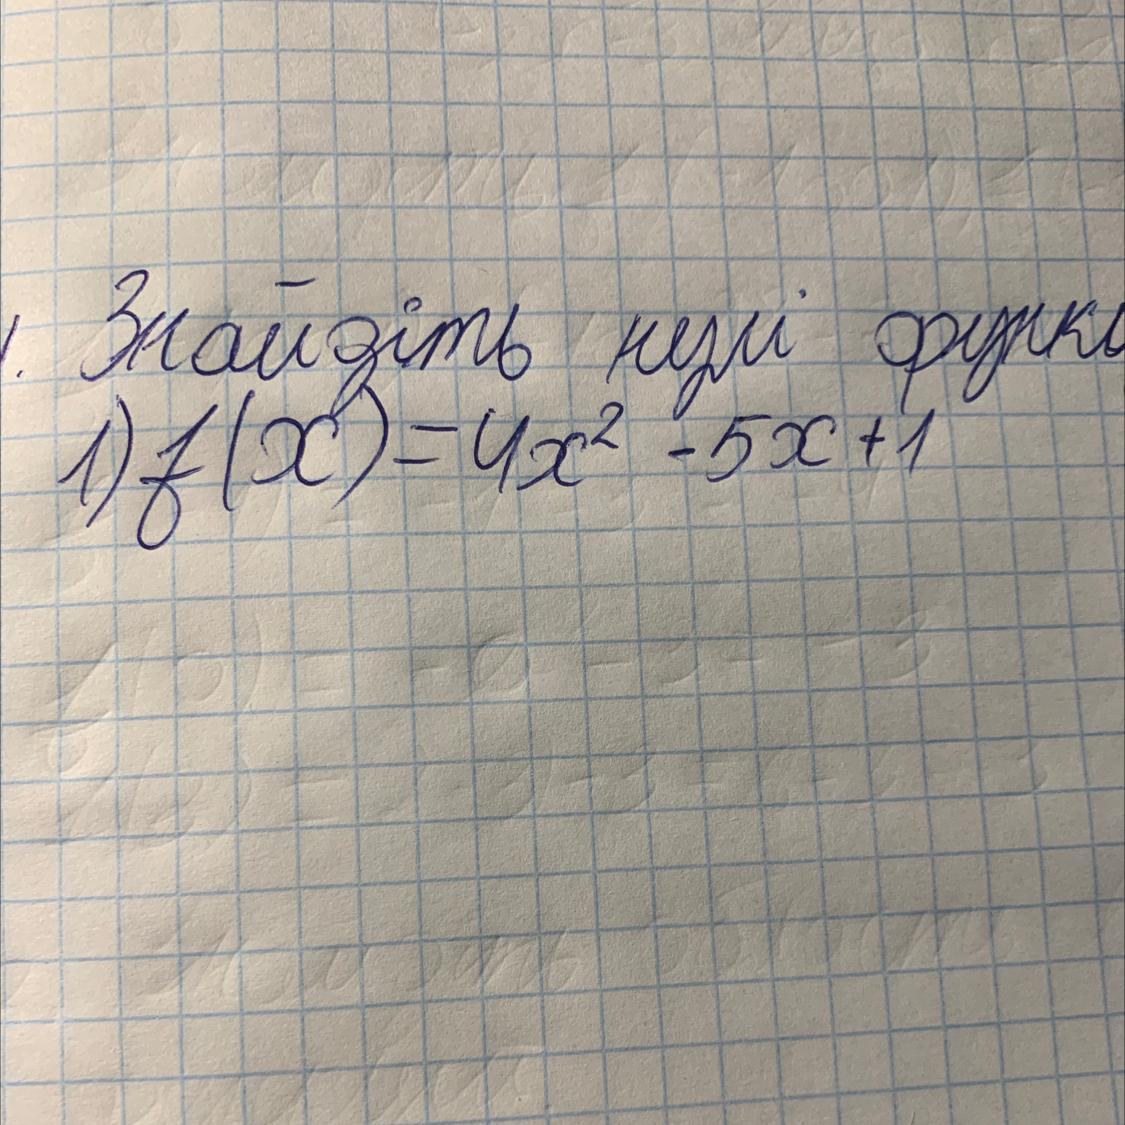 1. Знайдіть нулі функц
1) f(x)=4x² -5x+1